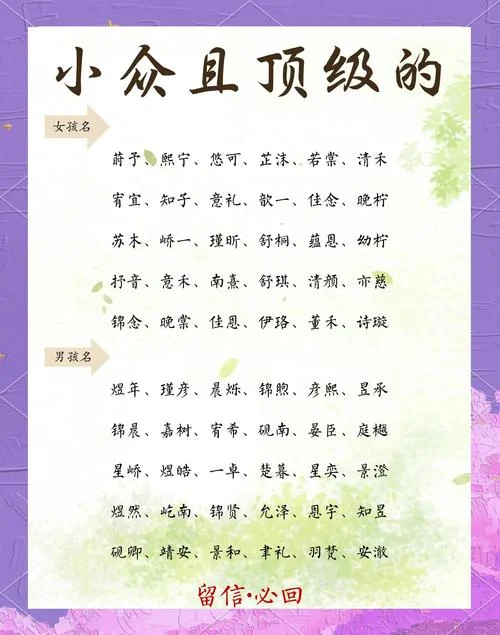 小众且顶级的
女孩名
莳予、熙宁、悠可、芷沫、若棠、清禾
宥宜、知予、意礼、歆一、佳念、晚柠
苏木、峤一、瑾昕、舒桐、蕴恩、幼柠
抒音、意禾、南熹、舒琪、清颜、亦慈
锦念、晚棠、佳恩、伊珞、董禾、诗璇
男孩名
煜年、瑾彦、晨烁、锦煦、彦熙、昱承
锦晨、嘉树、宥希、砚南、晏臣、庭樾
星峤、煜皓、一卓、楚暮、星奕、景澄
煜然、屹南、锦贤、允泽、恩宇、知昱
砚卿、靖安、景和、聿礼、羽梵、安澈
留信·必回